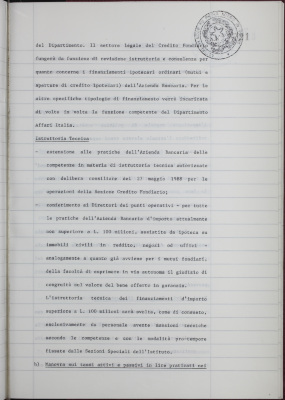 del Dipartimento. Il settore legale del Credito Fondiario
fungerà da funzione di revisione istruttoria e consulenza per
quanto concerne i finanziamenti ipotecari ordinari (mutui e
aperture di credito ipotecarie) dell'Azienda Bancaria. Per le
altre specifiche tipologie di finanziamento verrà incaricata
di volta in volta la funzione competente del Dipartimento
Affari Italia.
Istruttoria Tecnica
- estensione alle pratiche dell'Azienda Bancaria delle
competenze in materia di istruttoria tecnica autorizzate
con delibera consiliare del 27 maggio 1988 per le
operazioni della Sezione Credito Fondiario;
- conferimento ai Direttori dei punti operativi - per tutte
le pratiche dell'Azienda Bancaria d'importo attualmente
non superiore a L. 100 milioni, assistite da ipoteca su
immobili civili in reddito, negozi ed uffici -
analogamente a quanto già avviene per i mutui fondiari,
della facoltà di esprimere in via autonoma il giudizio di
congruità sul valore del bene offerto in garanzia.
L'istruttoria tecnica dei finanziamenti d'importo
superiore a L. 100 milioni sarà svolta, come di consueto,
esclusivamente da personale avente mansioni tecniche
secondo le competenze e con le modalità pro-tempore
fissate dalle Sezioni Speciali dell'Istituto.
b) Manovra sui tassi attivi e passivi in lire praticati nei